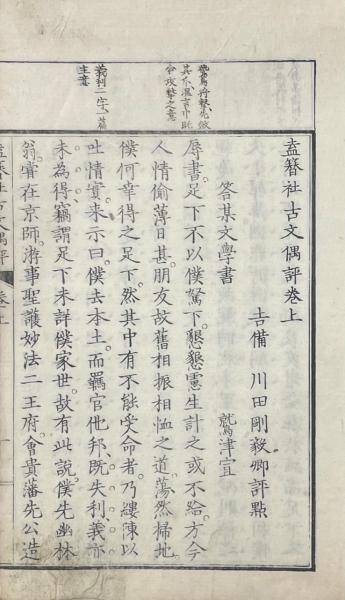 鷙鳥將擊先斂
其爪溫言中眤
含攻擊之意
義利二字一篇
主意
盍簪社古文偶評卷上
吉備 川田剛毅卿評點
答某文學書
鷲津宣
辱書足下不以僕駑下懇懇慮生計之或不給方今
人情偷薄日甚朋友故舊相振相恤之道蕩然掃地
僕何幸得之足下然其中有不能受命者乃縷陳以
吐情實來示曰僕去本土而羈官他邦既失利義亦
未為得竊謂足下未詳僕家世故有此說僕先幽林
翁嘗在京師游事聖護妙法二王府會貴藩先公造
盍簪社古文偶評 卷上